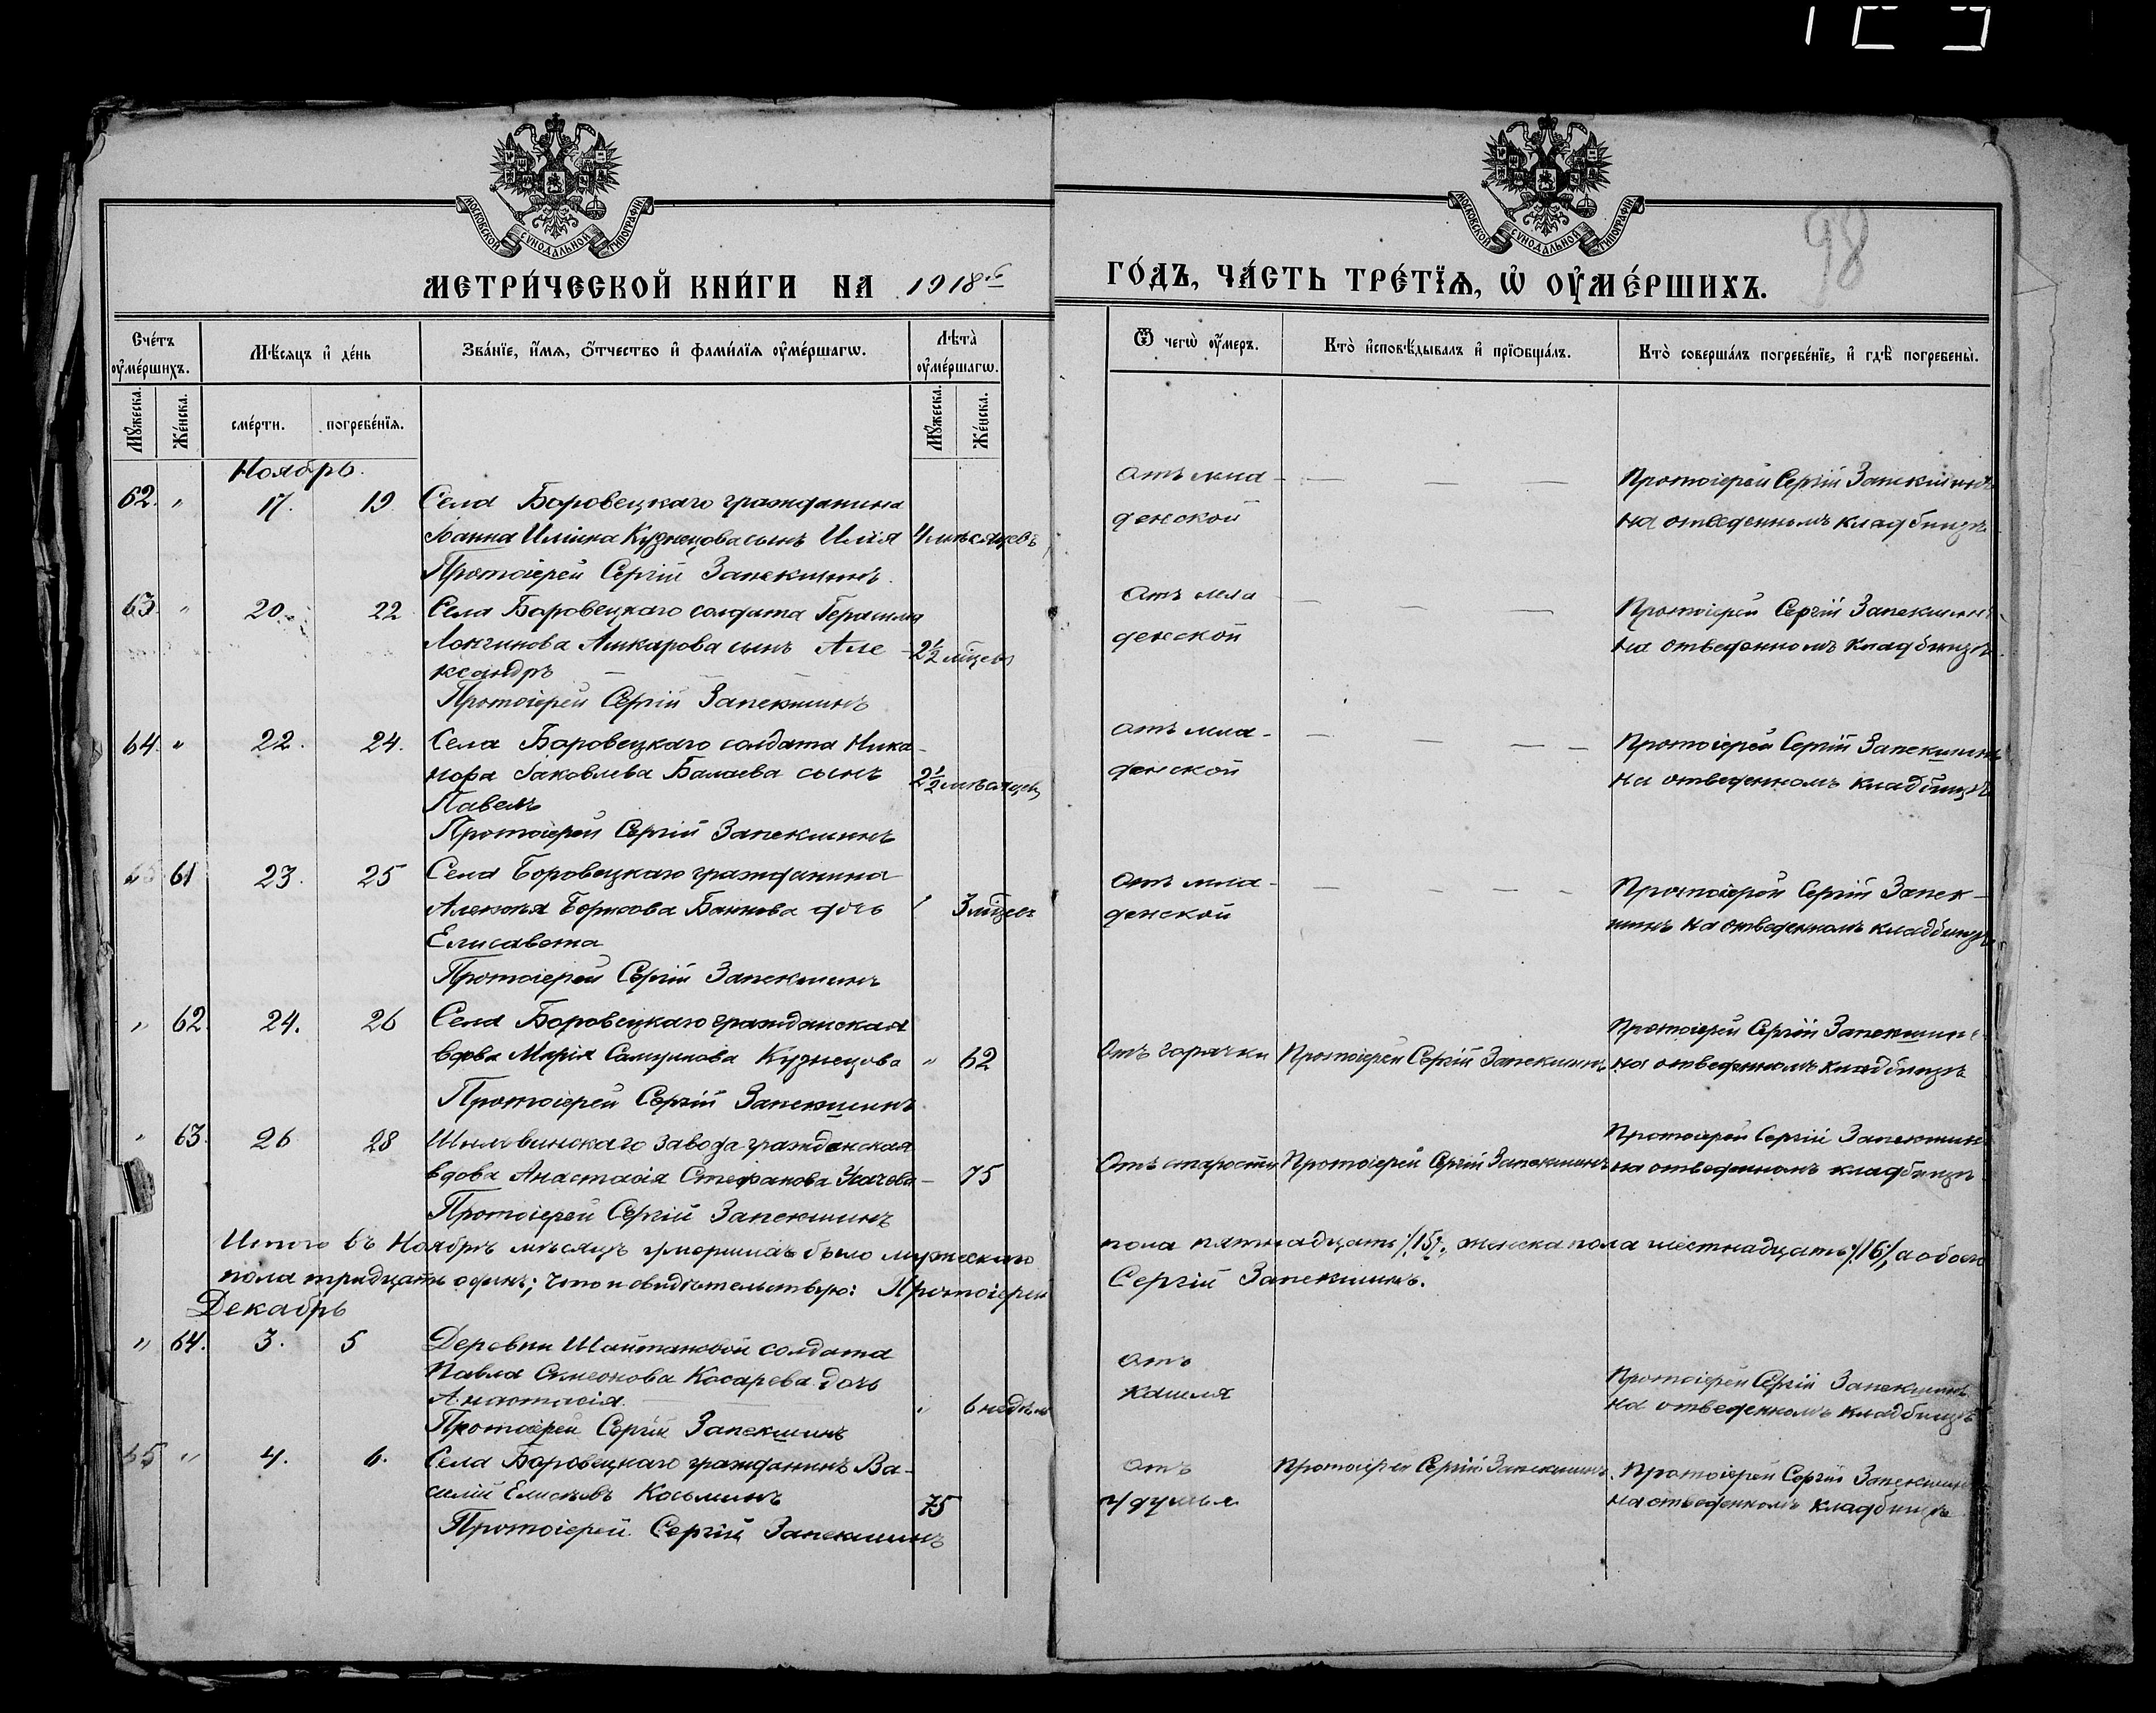 МОСКОВСКОЙ СѴНОДАЛЬНОЙ ТИПОГРАФІИ
МОСКОВСКОЙ СѴНОДАЛЬНОЙ ТИПОГРАФІИ
98
МЕТРИ́ЧЕСКОЙ КНИ́ГИ НА 1918 й
ГО́ДЪ, ЧА́СТЬ ТРЕ́ТЇѦ, Ѡ҆ ОУ҆МЕ́РШИХЪ.
Сче́тъ оу҆ме́ршихъ.
Мѣ́сяцъ и҆ де́нь
Зва́нїе, и҆́мѧ, ѻ҆́тчество и҆ фами́лїѧ оу҆ме́ршагѡ.
Лѣ́та̀ оу҆ме́ршагѡ.
Ѿ чегѡ̀ оу҆́меръ.
Кто̀ и҆сповѣ́дывалъ и҆ прїѡбща́лъ.
Кто̀ соверша́лъ погребе́нїе, и҆ гдѣ̀ погребены̀.
Мꙋ́жеска.
Же́нска.
сме́рти.
погребе́нїѧ.
Мꙋ́жеска.
Же́нска.
Ноябрь.
62. " 17. 19. Села Боровецкаго гражданина
Іоанна Иліина Кузнецова сынъ Илія 4 мѣсяцевъ
Протоіерей Сергій Запекшинъ.
Отъ мла-
денской
Протоіерей Сергій Запекшинъ
на отведенномъ кладбищѣ
63. " 20. 22 Села Боровецкаго солдата Герасима
Лонгинова Ашкарова сынъ Але- 2½ мцевъ
ксандръ
Протоіерей Сергій Запекшинъ
Отъ мла
денской
Протоіерей Сергій Запекшинъ
на отведенномъ кладбищѣ.
64. " 22. 24. Села Боровецкаго солдата Ника-
нора Іаковлева Балаева сынъ 2½ мѣсяцевъ
Павелъ
Протоіерей Сергій Запекшинъ
Отъ мла-
денской
Протоіерей Сергій Запекшинъ
на отведенномъ кладбищѣ
61 23. 25 Села Боровецкаго гражданина
Алексѣя Борисова дочь 3 мцевъ
Елисавета
Протоіерей Сергій Запекшинъ
Отъ мла-
денской
Протоіерей Сергій Запек-
шинъ на отведенномъ кладбищѣ
" 62 24. 26 Села Боровецкаго гражданская
вдова Марія Самуилова Кузнецова " 62
Протоіерей Сергій Запекшинъ
Отъ горячки Протоіерей Сергій Запекшинъ
Протоіерей Сергій Запекшинъ
на отведенномъ кладбищѣ
" 63. 26 28 Шильвинскаго завода гражданская
вдова Анастасія Стефанова - 75
Протоіерей Сергій Запекшинъ
Отъ старости Протоіерей Сергій Запекшинъ
Протоіерей Сергій Запекшинъ
на отведенномъ кладбищѣ
Итого въ Ноябрѣ мѣсяцѣ умершихъ было мужескаго
пола пятнадцать /15/, женска пола шестнадцать /16/, а обоего
пола тридцать одинъ; что и свидѣтельствую: Протоіерей
Сергій Запекшинъ.
Декабрь
" 64. 3. 5 Деревни Шайтановой солдата
Павла Симеонова Косарева дочь
Анастасія " 6 недѣль
Протоіерей Сергій Запекшинъ
Отъ
кашля
Протоіерей Сергій Запекшинъ
на отведенномъ кладбищѣ
65 " 4. 6. Села Боровецкаго гражданинъ Ва-
силій Елисѣевъ Косьминъ 75
Протоіерей Сергій Запекшинъ
Отъ
удушья
Протоіерей Сергій Запекшинъ.
Протоіерей Сергій Запекшинъ
на отведенномъ кладбищѣ